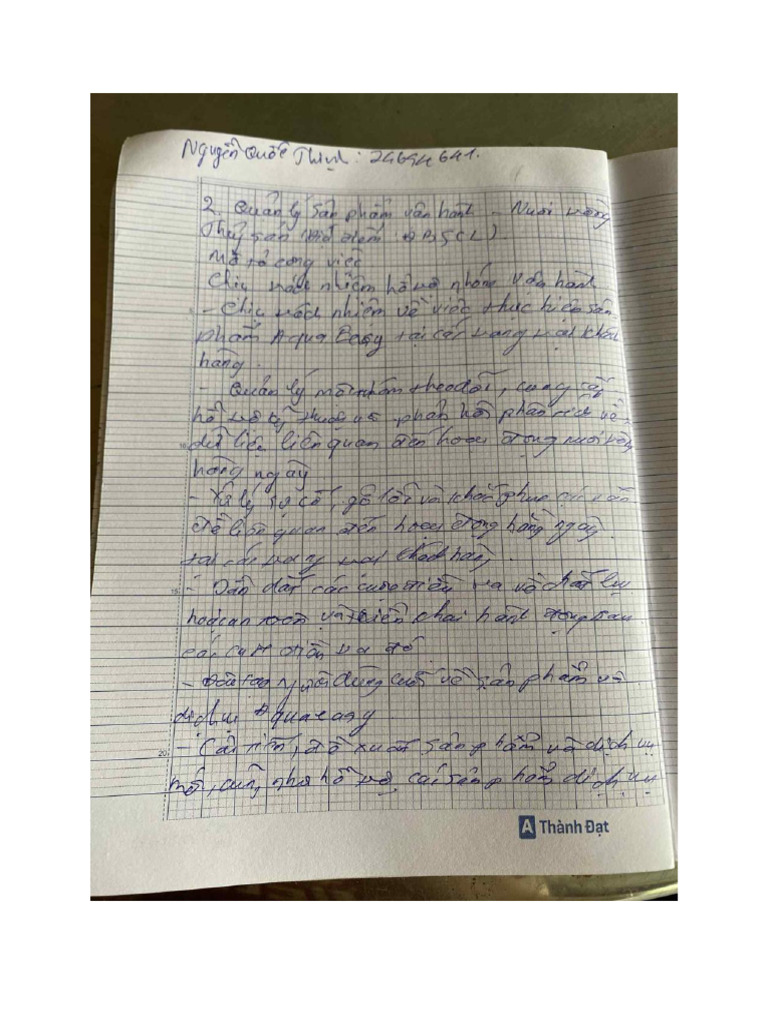 Nguyễn Quốc Thịnh: 24694641.
2. Quản lý sản phẩm vận hành - Nuôi trồng
Thủy sản (địa điểm: ĐBSCL).
Mô tả công việc
Chịu trách nhiệm hỗ trợ nhóm vận hành
- Chịu trách nhiệm về việc thực hiện sản
phẩm Aqua Easy tại các trang trại khách
hàng.
- Quản lý một nhóm theo dõi, cung cấp
hỗ trợ kỹ thuật và phản hồi phân tích về
dữ liệu liên quan đến hoạt động nuôi trồng
hàng ngày
- Xử lý sự cố, gỡ lỗi và khắc phục các vấn
đề liên quan đến hoạt động hàng ngày
tại các trang trại khách hàng.
- Dẫn dắt các cuộc điều tra về
và triển khai hành động sau
các cuộc điều tra đó
- Đào tạo người dùng cuối về sản phẩm và
dịch vụ Aquaeasy
- Cải tiến, đề xuất sản phẩm và dịch vụ
mới, cũng như hỗ trợ các sản phẩm dịch vụ
A Thành Đạt